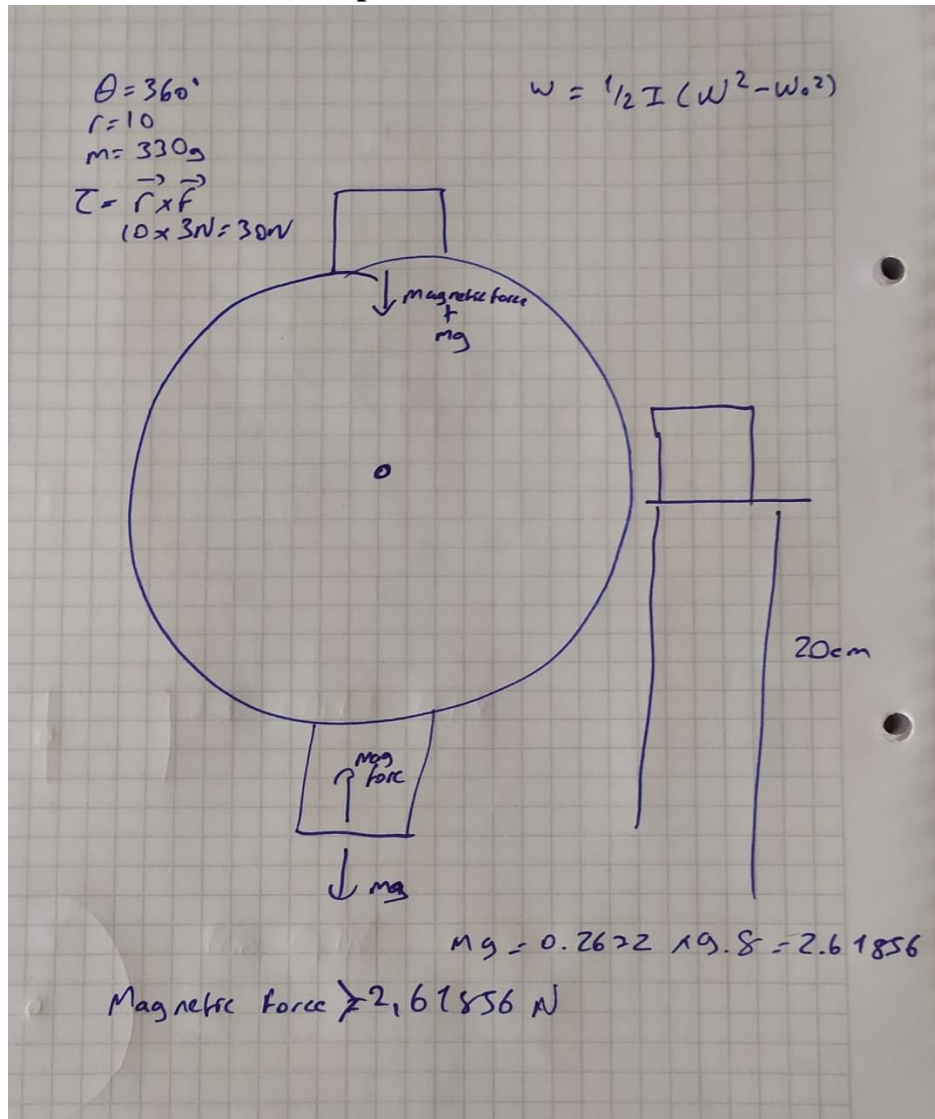 θ = 360°
r = 10
m = 330g
τ = r⃗ x F⃗
10 x 3N = 30N
W = 1/2 I (ω² - ω₀²)
Magnetic force
+
mg
20cm
Mag
forc
mg
mg = 0.2672 x 9.8 = 2.61856
Magnetic force ≥ 2,61856 N